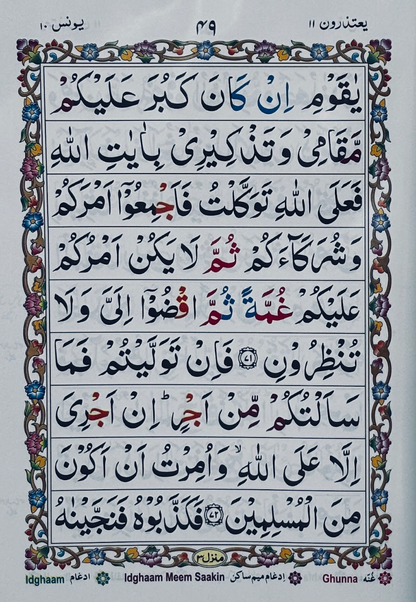 یعتذرون ۱۱ ۴۹ یونس ۱۰
یٰقَوْمِ اِنْ كَانَ كَبُرَ عَلَیْكُمْ
مَّقَامِیْ وَ تَذْكِیْرِیْ بِاٰیٰتِ اللّٰهِ
فَعَلَی اللّٰهِ تَوَكَّلْتُ فَاَجْمِعُوْۤا اَمْرَكُمْ
وَ شُرَكَآءَكُمْ ثُمَّ لَا یَكُنْ اَمْرُكُمْ
عَلَیْكُمْ غُمَّةً ثُمَّ اقْضُوْۤا اِلَیَّ وَ لَا
تُنْظِرُوْنِ ﴿۷۱﴾ فَاِنْ تَوَلَّیْتُمْ فَمَا
سَاَلْتُكُمْ مِّنْ اَجْرٍ ؕ اِنْ اَجْرِیَ
اِلَّا عَلَی اللّٰهِ ۙ وَ اُمِرْتُ اَنْ اَكُوْنَ
مِنَ الْمُسْلِمِیْنَ ﴿۷۲﴾ فَكَذَّبُوْهُ فَنَجَّیْنٰهُ
منزل ۳
Idghaam ادغام Idghaam Meem Saakin اِدغام میم ساکن Ghunna غُنّه